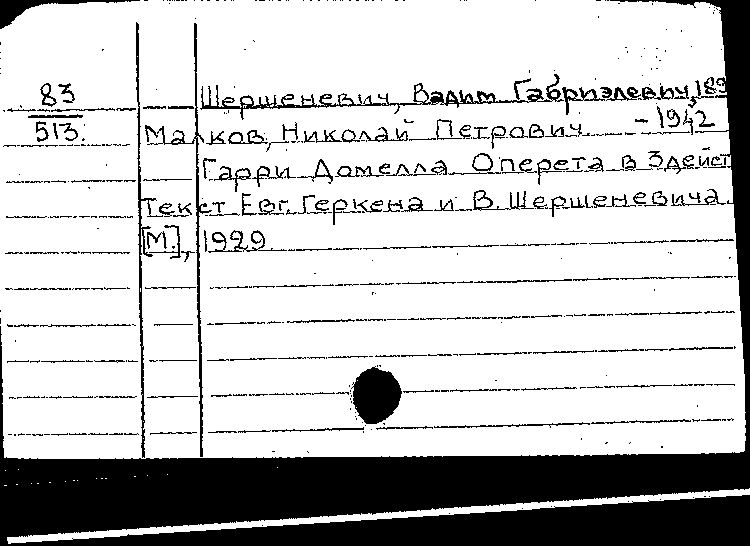 83 Шершеневич, Вадим Габриэлевич, 189
513. Малков, Николай Петрович -1942
Гарри Домелла. Оперета в 3 дейст
Текст Евг. Геркена и В. Шершеневича.
[М.], 1929